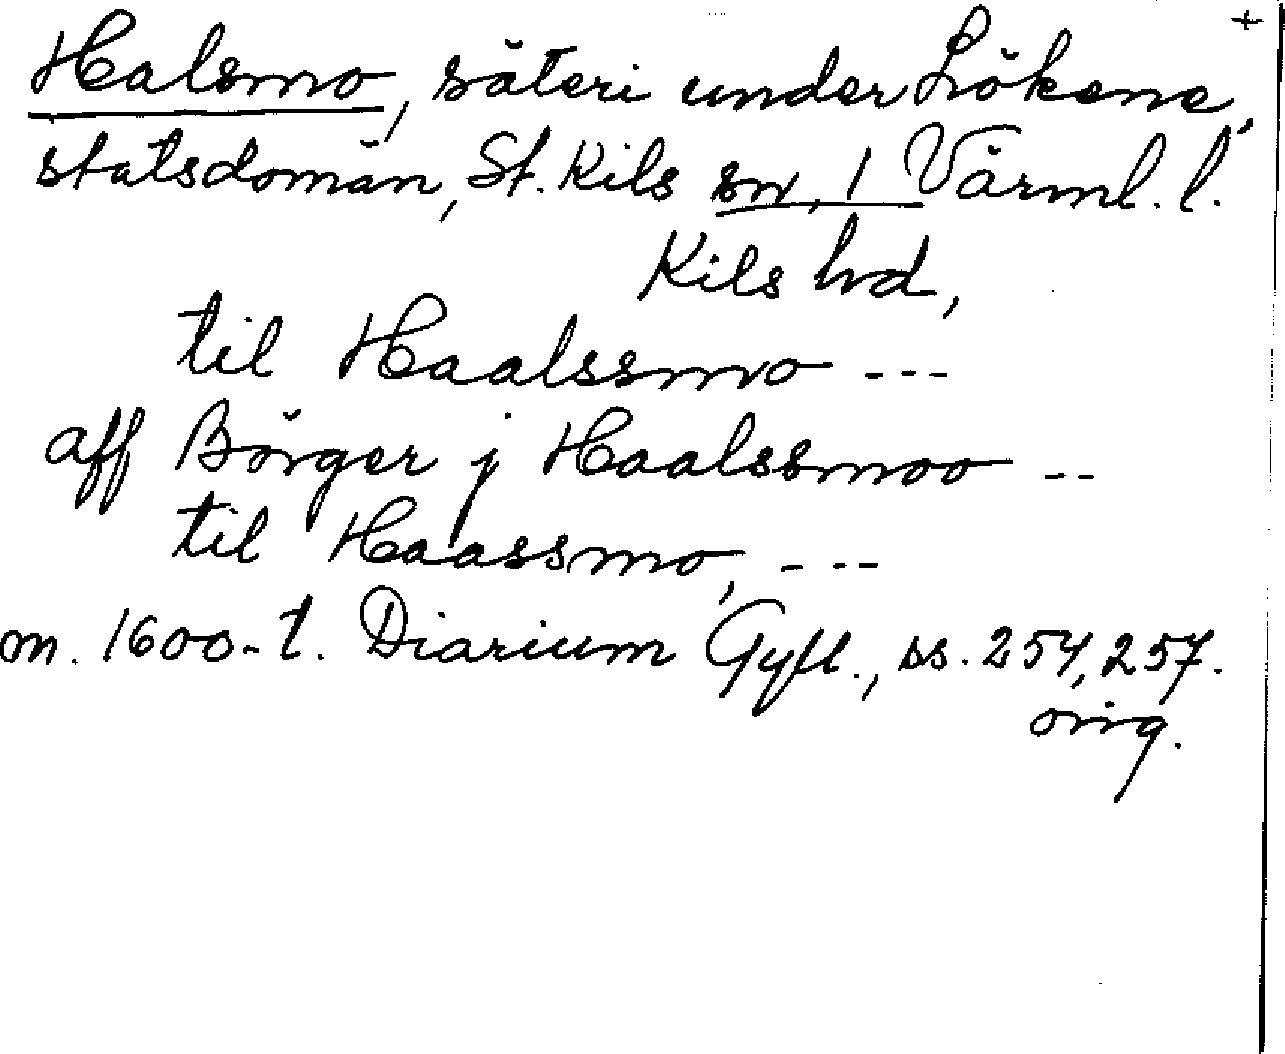 +
Halsmo, säteri under Lökene,
statsdomän, St. Kils sn, 1 Värml. l.
Kils hd,
til Haalssmo ---
aff Börger j Haalssmoo --
til Haassmo, ---
m. 1600-t. Diarium Gyll., ss. 254, 257.
orig.